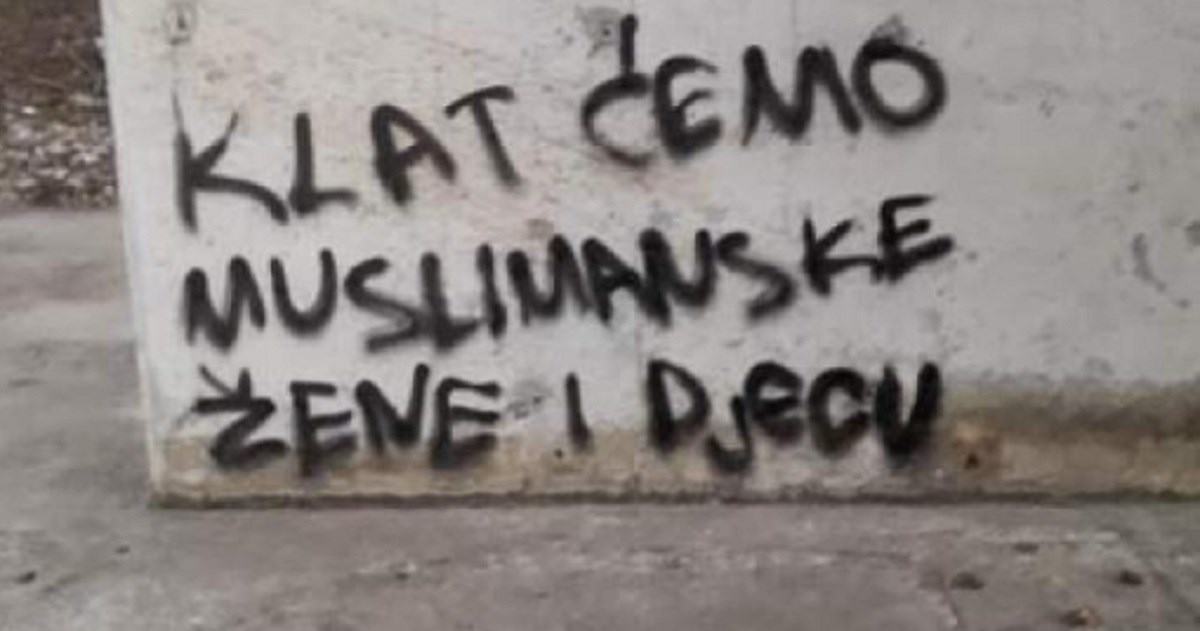 KLAT ĆEMO
MUSLIMANSKE
ŽENE I DjeCU